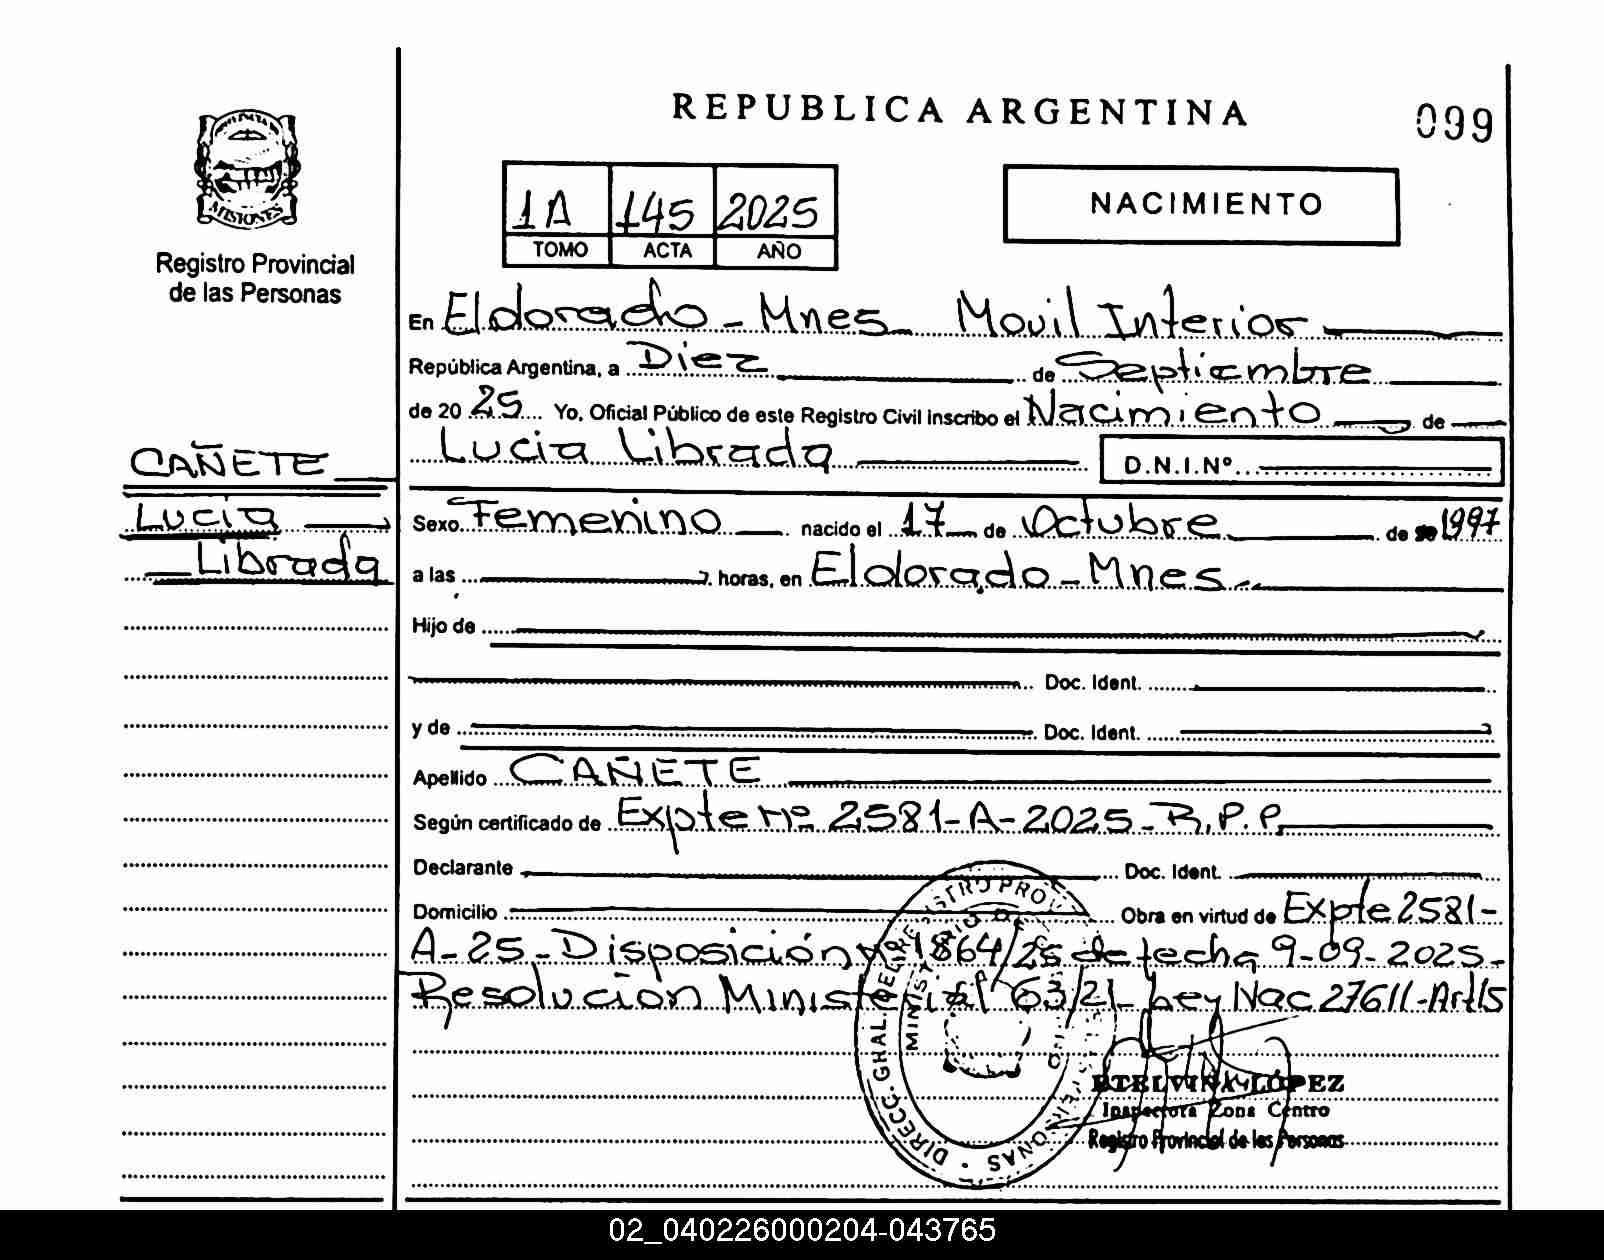 REPUBLICA ARGENTINA
099
MISIONES
Registro Provincial
de las Personas
1A 145 2025
TOMO ACTA AÑO
NACIMIENTO
En Eldorado - Mnes - Movil Interior
República Argentina, a Diez de Septiembre
de 20 25 Yo, Oficial Público de este Registro Civil inscribo el Nacimiento de
Lucia Librada D.N.I.Nº
CAÑETE
Lucia
Librada
Sexo Femenino nacido el 17 de Octubre de 1997
a las horas, en Eldorado - Mnes -
Hijo de
Doc. Ident.
y de Doc. Ident.
Apellido CAÑETE
Según certificado de Expte nº 2581-A-2025-R.P.P.
Declarante Doc. Ident.
Domicilio Obra en virtud de Expte 2581-
A-25-Disposición Nº 1864/25 de fecha 9-09-2025-
Resolución Ministerial 63/21- Ley Nac 27611-Art15
ETELVINA LÓPEZ
Inspectora Zona Centro
Registro Provincial de las Personas
02_040226000204-043765